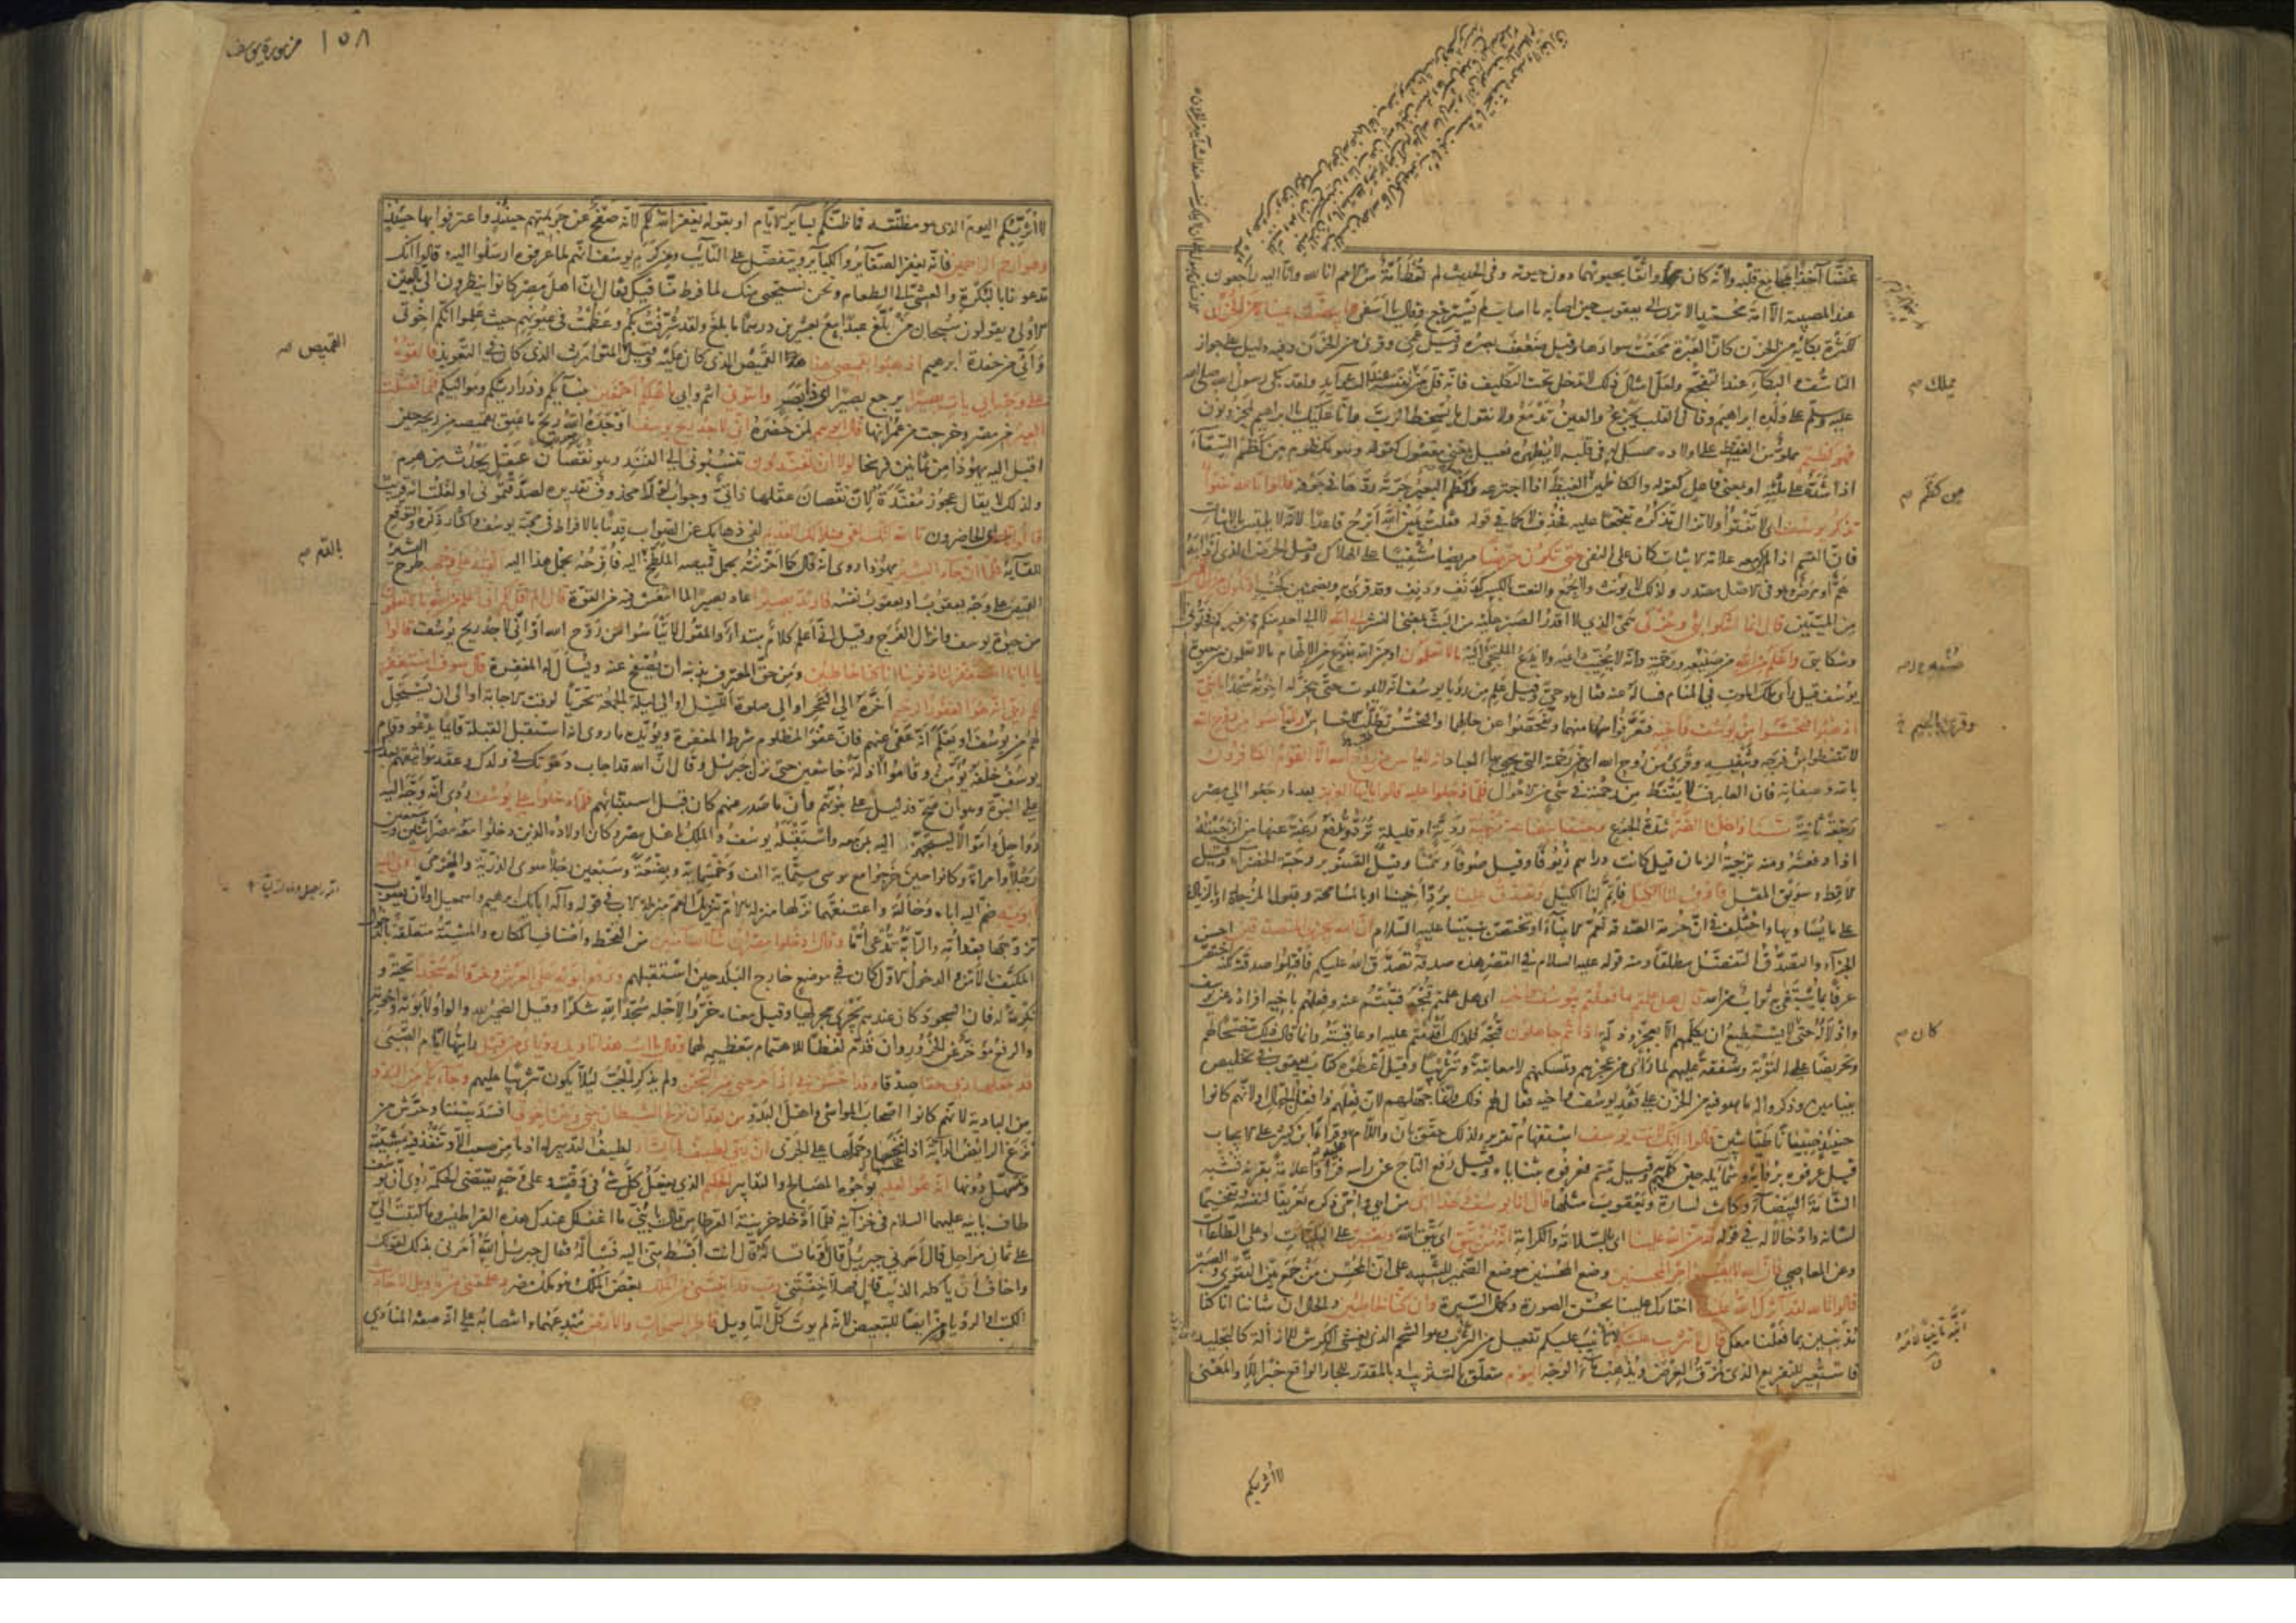 غضّا آخذا بمجامع قلبه ولانه كان واثقا بحيوتهما دون حيوته وفى الحديث لم تعط امة من الامم انا لله وانا اليه راجعون
عند المصيبة الا امة محمد الا ترى الى يعقوب حين اصابه ما اصابه لم يسترجع وقال يا اسفى وابيضت عيناه من الحزن
لكثرة بكائه من الحزن كان العبرة محقت سوادها وقيل ضعف بصره وقيل عمى وقرئ من الحزن وفيه دليل على جواز
التاسف والبكاء عند التفجع ولعل امثال ذلك لا تدخل تحت التكليف فانه قل من يملك نفسه عند الشدائد ولقد بكى رسول الله صلى الله
عليه وسلم على ولده ابراهيم وقال القلب يجزع والعين تدمع ولا نقول ما يسخط الرب وانا عليك يا ابراهيم لمحزونون
فهو كظيم مملوء من الغيظ على اولاده ممسك له فى قلبه لا يظهره فعيل بمعنى مفعول كقوله وهو مكظوم من كظم السقاء
اذا شده على ملئه او بمعنى فاعل كقوله والكاظمين الغيظ اذا اجترعه وكظم البعير جرته ردها فى جوفه قالوا تالله تفتؤ
تذكر يوسف اى لا تفتؤ ولا تزال تذكره تفجعا عليه فحذف لا كما فى قوله فقلت يمين الله ابرح قاعدا لانه لا يلتبس بالاثبات
فان القسم اذا لم يكن معه علامة الاثبات كان على النفى حتى تكون حرضا مريضا مشفيا على الهلاك وقيل الحرض الذى اذابه
هم او مرض وهو فى الاصل مصدر ولذلك لا يؤنث ولا يجمع والنعت بالكسر كدنف ودنف وقد قرئ به وبضمتين كجنب او تكون من الهالكين
من الميتين قال انما اشكوا بثى وحزنى همى الذى لا اقدر الصبر عليه من البث بمعنى النشر الى الله لا الى احد منكم ومن غيركم فخلونى
وشكايتى واعلم من الله من صنعه ورحمته وانه لا يخيب داعيه ولا يدع الملتجئ اليه ما لا تعلمون او من الله بنوع من الالهام ما لا تعلمون من حيوة
يوسف قيل رأى ملك الموت فى المنام فسأله عنه فقال هو حى وقيل علم من رؤيا يوسف انه لا يموت حتى يخر له اخوته سجدا يا بنى
اذهبوا فتحسسوا من يوسف واخيه فتعرفوا منهما وتفحصوا عن حالهما والتحسس تطلب الاحساس ولا تيأسوا من روح الله
لا تقنطوا من فرجه وتنفيسه وقرئ من روح الله اى من رحمته التى يحيى بها العباد انه لا ييأس من روح الله الا القوم الكافرون
بالله وصفاته فان العارف لا يقنط من رحمته فى شئ من الاحوال فلما دخلوا عليه قالوا يا ايها العزيز بعد ما رجعوا الى مصر
رجعة ثانية مسنا واهلنا الضر شدة الجوع وجئنا ببضاعة مزجاة ردية او قليلة ترد وتدفع رغبة عنها من ازجيته
اذا دفعته ومنه تزجية الزمان قيل كانت دراهم زيوفا وقيل صوفا وسمنا وقيل الصنوبر وحبة الخضراء وقيل
الاقط وسويق المقل فاوف لنا الكيل فاتم لنا الكيل وتصدق علينا برد اخينا او بالمسامحة وقبول المزجاة او بالزيادة
على ما يساويها واختلف فى ان حرمة الصدقة تعم الانبياء او تختص بنبينا عليه السلام ان الله يجزى المتصدقين احسن
الجزاء والتصدق التفضل مطلقا ومنه قوله عليه السلام فى القصر هذه صدقة تصدق الله عليكم فاقبلوا صدقته لكنه اختص
عرفا بما يبتغى به ثواب من الله قال هل علمتم ما فعلتم بيوسف واخيه اى هل علمتم قبحه فتبتم عنه وفعلهم باخيه افراده عن يوسف
واذلاله حتى لا يستطيع ان يكلمهم الا بعجز وذلة اذ انتم جاهلون قبحه فلذلك اقدمتم عليه او عاقبته وانما قال ذلك تنصحا لهم
وتحريضا على التوبة وشفقة عليهم لما رأى من عجزهم وتمسكنهم لا معاتبة وتثريبا وقيل اعطوه كتاب يعقوب فى تخليص
بنيامين وذكروا له ما هو فيه من الحزن على فقد يوسف واخيه فقال لهم ذلك وانما جهلهم لان فعلهم فعل الجهال او لانهم كانوا
حينئذ صبيانا طياشين قالوا ائنك لانت يوسف استفهام تقرير ولذلك حقق بان واللام وقرأ ابن كثير على الايجاب
قيل عرفوه بروائه وشمائله حين كلمهم وقيل تبسم فعرفوه بثناياه وقيل رفع التاج عن رأسه فرأوا علامة بقرنه تشبه
الشامة البيضاء وكانت لسارة ويعقوب مثلها قال انا يوسف وهذا اخى من ابى وامى ذكره تعريفا لنفسه وتفخيما
لشانه وادخالا له فى قوله قد من الله علينا اى بالسلامة والكرامة انه من يتق اى يتق الله ويصبر على البليات او على الطاعات
وعن المعاصى فان الله لا يضيع اجر المحسنين وضع المحسنين موضع الضمير للتنبيه على ان المحسن من جمع بين التقوى والصبر
قالوا تالله لقد آثرك الله علينا اختارك علينا بحسن الصورة وكمال السيرة وان كنا لخاطئين والحال ان شاننا انا كنا
مذنبين بما فعلنا معك قال لا تثريب عليكم لا تأنيب عليكم تفعيل من الثرب وهو الشحم الذى يغشى الكرش للازالة كالتجليد
فاستعير للتقريع الذى يمزق العرض ويذهب ماء الوجه اليوم متعلق بالتثريب او بالمقدر للجار الواقع خبرا للا والمعنى
يملك
من كظم
كان
لا اثربكم
١٥٨ من سورة يوسف
لا اثربكم اليوم الذى هو مظنته فما ظنكم بسائر الايام او بقوله يغفر الله لكم لانه صفح عن جريمتهم حينئذ واعترفوا بها حينئذ
وهو ارحم الراحمين فانه يغفر الصغائر والكبائر ويتفضل على التائب ومن كرم يوسف انهم لما عرفوه ارسلوا اليه وقالوا انك
تدعونا بالبكرة والعشى الى الطعام ونحن نستحيى منك لما فرط منا فيك فقال ان اهل مصر كانوا ينظرون الى بالعين
الاولى ويقولون سبحان من بلغ عبدا بيع بعشرين درهما ما بلغ ولقد شرفت بكم وعظمت فى عيونهم حيث علموا انكم اخوتى
وانى من حفدة ابرهيم اذهبوا بقميصى هذا القميص الذى كان عليه وقيل المتوارث الذى كان فى التعويذ فالقوه
على وجه ابى يات بصيرا يرجع بصيرا اى ذا بصر واتونى انتم وابى باهلكم اجمعين بنسائكم وذراريكم ومواليكم فلما فصلت
العير من مصر وخرجت من عمرانها قال ابوهم لمن حضره انى لاجد ريح يوسف اوجده الله ريح ما عبق بقميصه من ريحه حين
اقبل اليه يهوذا من ثمانين فرسخا لولا ان تفندون تنسبونى الى الفند وهو نقصان عقل يحدث من هرم
ولذلك لا يقال عجوز مفندة لان نقصان عقلها ذاتى وجواب لولا محذوف تقديره لصدقتمونى او لقلت انه قريب
قالوا اى الحاضرون تالله انك لفى ضلالك القديم لفى ذهابك عن الصواب قدما بالافراط فى محبة يوسف واكثار ذكره والتوقع
للقائه فلما ان جاء البشير يهوذا روى انه قال كما احزنته بحمل قميصه الملطخ اليه فافرحه بحمل هذا اليه القيه على وجهه طرح البشير
القميص على وجه يعقوب او يعقوب نفسه فارتد بصيرا عاد بصيرا لما انتعش فيه من القوة قال الم اقل لكم انى اعلم من الله ما لا تعلمون
من حيوة يوسف وانزال الفرج وقيل انى اعلم كلام مبتدأ والمقول لا تيأسوا من روح الله او انى لاجد ريح يوسف قالوا
يا ابانا استغفر لنا ذنوبنا انا كنا خاطئين ومن حق المعترف بذنبه ان يصفح عنه ويسأل له المغفرة قال سوف استغفر
لكم ربى انه هو الغفور الرحيم اخره الى السحر او الى صلوة الليل او الى ليلة الجمعة تحريا لوقت الاجابة او الى ان يستحل
لهم من يوسف او يعلم انه عفى عنهم فان عفو المظلوم شرط المغفرة ويؤيده ما روى انه استقبل القبلة قائما يدعو وقام
يوسف خلفه يؤمن وقاموا اذلة خاشعين حتى نزل جبرئيل وقال ان الله قد اجاب دعوتك فى ولدك وعقد مواثيقهم بعدك
على النبوة وهو ان صح فدليل على نبوتهم وان ما صدر منهم كان قبل استنبائهم فلما دخلوا على يوسف روى انه وجه اليه
رواحل واموالا ليتجهز اليه بمن معه واستقبله يوسف والملك باهل مصر وكان اولاده الذين دخلوا معه مصر اثنين وسبعين
رجلا وامرأة وكانوا حين خرجوا مع موسى ستمائة الف وخمسمائة وبضعة وسبعين رجلا سوى الذرية والهرمى آوى اليه
ابويه ضم اليه اباه وخالته واعتنقهما نزلها منزلة الام تنزيل العم منزلة الاب فى قوله واله ابائك ابرهيم واسمعيل او لان يعقوب
تزوجها بعد امه والرابة تدعى اما وقال ادخلوا مصر ان شاء الله آمنين من القحط واصناف المكاره والمشيئة متعلقة بالدخول
المكيف بالامن والدخول الاول كان فى موضع خارج البلد حين استقبلهم ورفع ابويه على العرش وخروا له سجدا تحية و
تكرمة له فان السجود كان عندهم يجرى مجريها وقيل معناه خروا لاجله سجدا لله شكرا وقيل الضمير لله والواو لابويه واخوته
والرفع مؤخر عن الخرور وان قدم لفظا للاهتمام بتعظيمه لهما وقال يا ابت هذا تاويل رؤياى من قبل رأيتها ايام الصبى
قد جعلها ربى حقا صدقا وقد احسن بى اذ اخرجنى من السجن ولم يذكر الجب لئلا يكون تثريبا عليهم وجاء بكم من البدو
من البادية لانهم كانوا اصحاب المواشى واهل البدو من بعد ان نزغ الشيطان بينى وبين اخوتى افسد بيننا وحرش من
نزغ الرائض الدابة اذا نخسها وحملها على الجرى ان ربى لطيف لما يشاء لطيف التدبير له اذ ما من صعب الا وتنفذ فيه مشيئته
ويتسهل دونها انه هو العليم بوجوه المصالح والتدابير الحكيم الذى يفعل كل شئ فى وقته وعلى وجه يقتضى الحكمة روى ان يوسف
طاف بابيه عليهما السلام فى خزائنه فلما ادخله خزينة القرطاس قال يا بنى ما اغفلك عندك هذه القراطيس وما كتبت الى
على ثمان مراحل قال امرنى جبرئيل قال او ما تسأله قال انت ابسط منى اليه فسأله فقال جبرئيل الله امرنى بذلك لقولك
واخاف ان ياكله الذئب قال فهلا خفتنى رب قد آتيتنى من الملك بعض الملك وهو ملك مصر وعلمتنى من تاويل الاحاديث
الكتب او الرؤيا ومن ايضا للتبعيض لانه لم يؤت كل التاويل فاطر السموات والارض مبدعهما وانتصابه على انه صفة المنادى
القميص
بالدم